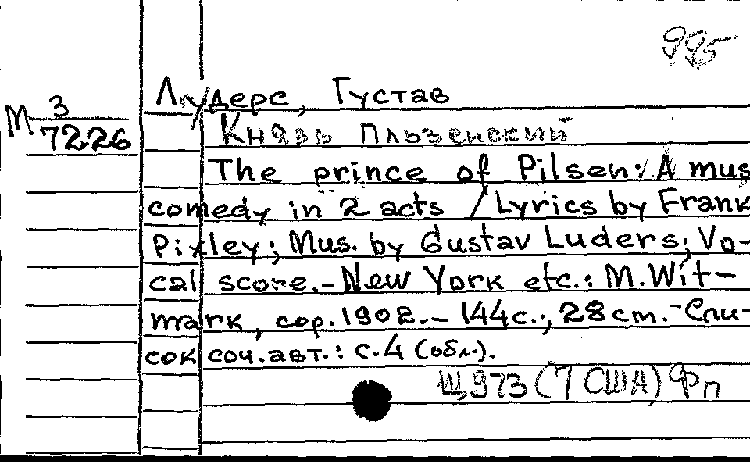 995
Людерс, Густав
М 3
7226
Князь Пльзенский
The prince of Pilsen: A mus
comedy in 2 acts / Lyrics by Frank
Pixley; Mus. by Gustav Luders; Vo-
cal score. - New York etc.: M. Wit-
mark, cop. 1902. - 144 с.; 28 cm. - Спи-
сок соч. авт.: с. 4 (обл.).
Щ973(7 США) Фп